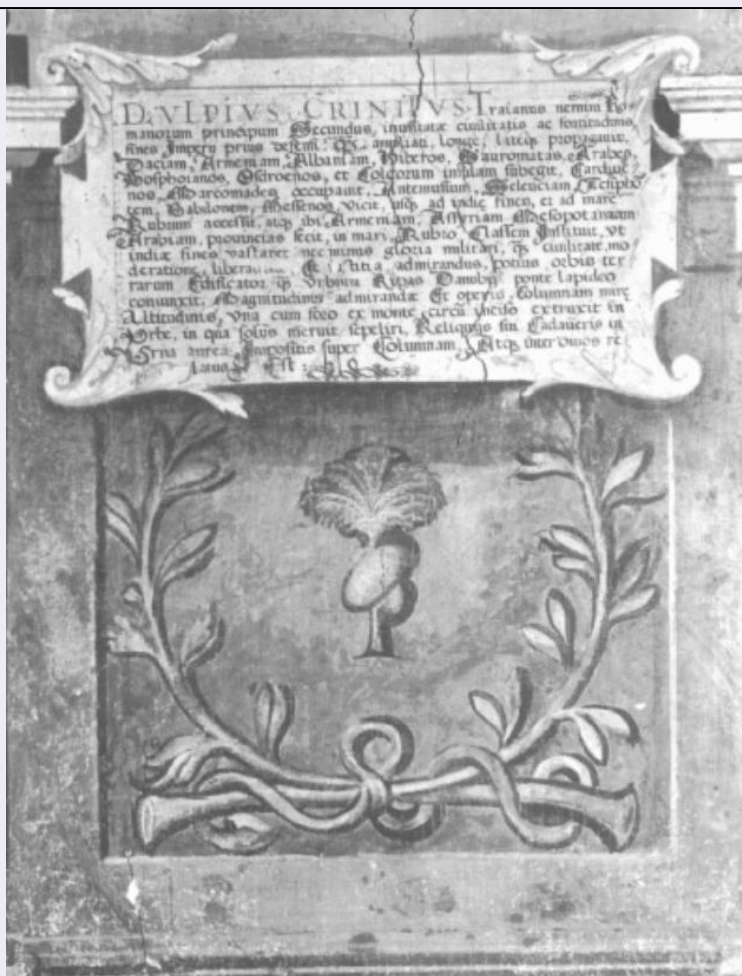 D. VLPIVS CRINITVS. Traianus nemini Ro
manorum principum Secundus, inusitatæ ciuilitatis ac fortitudinis,
fines Impery prius longe, lateq; propagauit.
Daciam, Armeniam, Albaniam, Hiberos, Sauromatas, Arabes,
Bosphoranos, Osdroenos, et Colcorum insulam subegit, Cardue
nos, Marcomades occupauit, Antemusium, Seleuciam, Ctesipho
tem, Babilonem, Messenos, vicit, usq; ad indie fines, et ad mare
Rubrum accessit, atq; ibi Armeniam, Assyriam Mæsopotamiam
Arabiam, prouincias fecit, in mari, Rubro Classem Instituit, vt
indiæ fines vastaret nec minus gloria militari, q; ciuilitate, mo
deratione, admirandus, potius orbis ter
rarum Edificator q; Vrbium Ripas Danuby ponte lapideo
coniunxit, Magnitudinis admirandæ Et operis, Columnam miræ
Altitudinis, vna cum foro ex monte circu inciso extruxit in
Vrbe, in qua solus meruit, sepeliri, Reliquys sui Cadaueris in
Vrna aurea, Impositis super Columnam, Atq; inter diuos re
latus Est